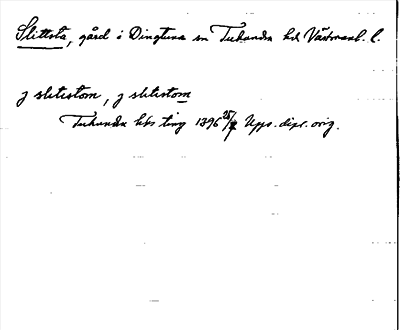 Slittsta, gård i Dingtuna sn Tuhundra hd Västmanl. l.
j sletistom, j sletistom
Tuhundra hds ting 1396 25/4 Upps. dipl. orig.